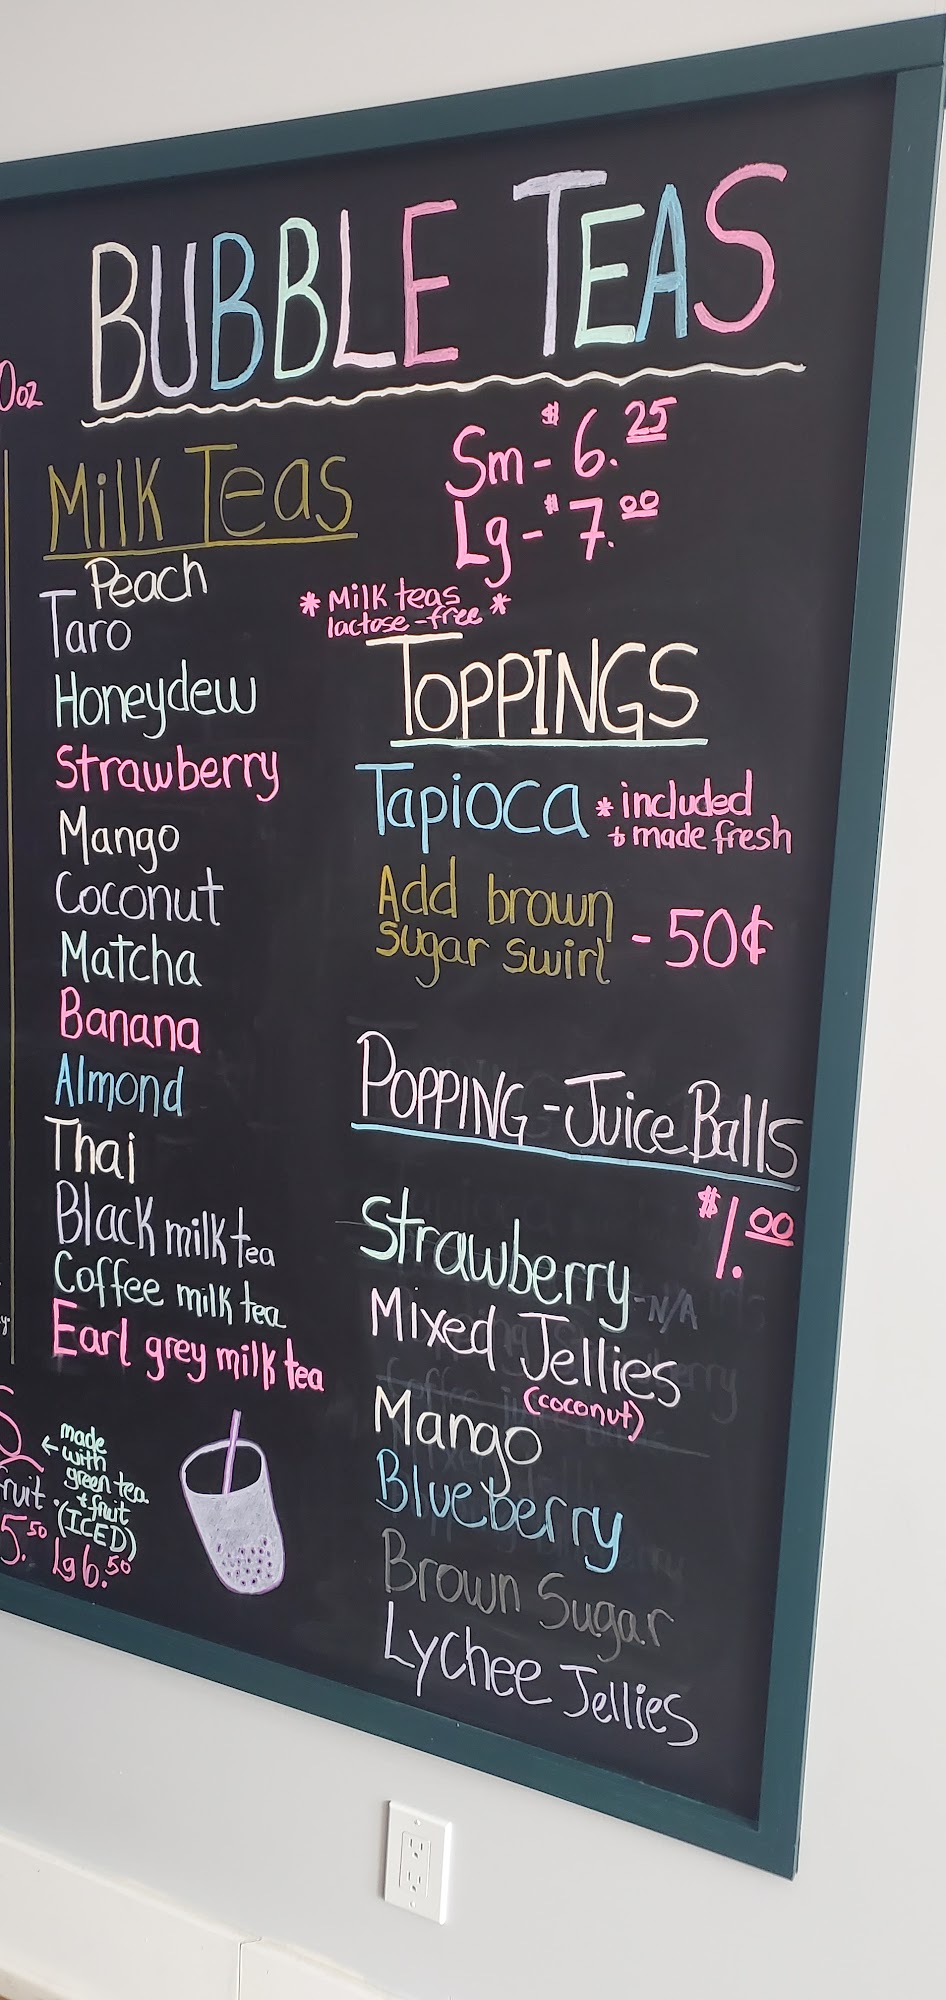 BUBBLE TEAS
0oz
Sm - $6.25
Lg - $7.00
Milk Teas
Peach
Taro
Honeydew
Strawberry
Mango
Coconut
Matcha
Banana
Almond
Thai
Black milk tea
Coffee milk tea
Earl grey milk tea
* Milk teas *
lactose-free
TOPPINGS
Tapioca * included
+ made fresh
Add brown
sugar swirl - 50¢
POPPING - Juice Balls
$1.00
Strawberry - N/A
Mixed Jellies
(coconut)
Mango
Blueberry
Brown Sugar
Lychee Jellies
← made
with
green tea
+ fruit
(ICED)
fruit.
5.50 Lg 6.50